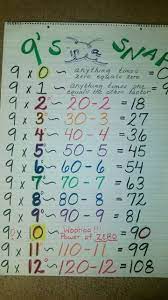 9's in a SNAP
9 x 0 ~ anything times zero equals zero
9 x 1 ~ anything times one equals the other factor
9 x 2 ~ 20-2 = 18
9 x 3 ~ 30-3 = 27
9 x 4 ~ 40-4 = 36
9 x 5 ~ 50-5 = 45
9 x 6 ~ 60-6 = 54
9 x 7 ~ 70-7 = 63
9 x 8 ~ 80-8 = 72
9 x 9 ~ 90-9 = 81
9 x 10 ~ Woohoo!! Power of ZERO 90
9 x 11 ~ 110-11 = 99
9 x 12 ~ 120-12 = 108